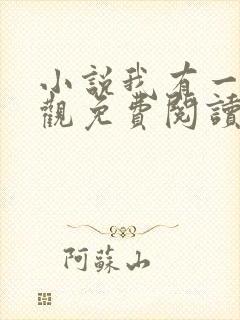 小說我有一
觀免費閱讀
阿蘇山